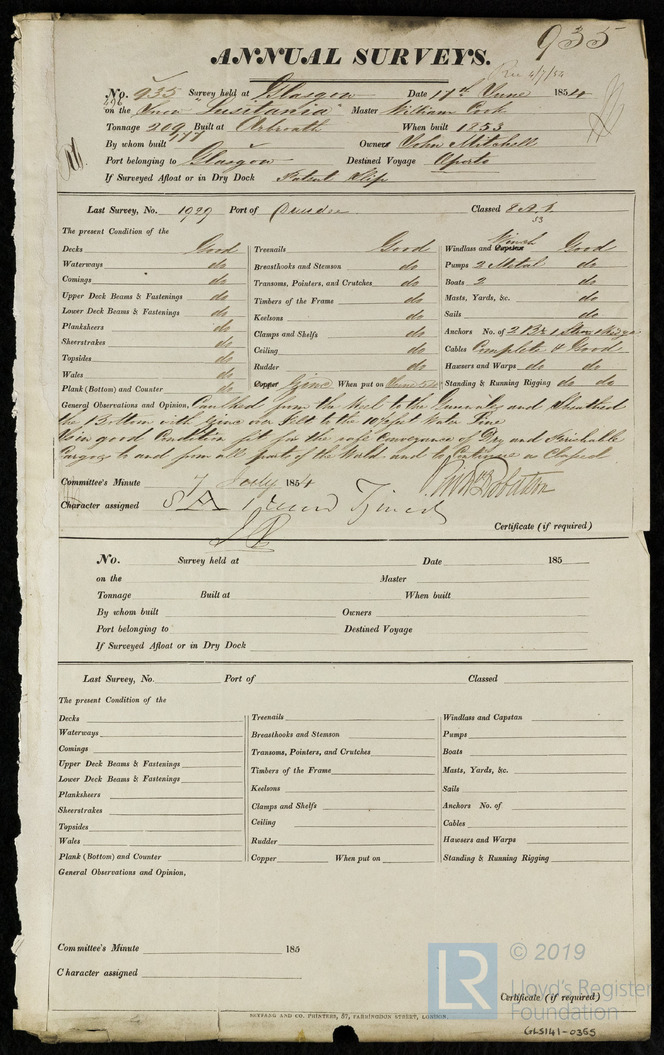 935
ANNUAL SURVEYS.
Rec 4/7/54
No. 935 Survey held at Glasgow Date 17th June 1854
on the Snow "Lusitania" Master William Cook
496
Tonnage 209 Built at Arbroath When built 1853
177
By whom built Owners John Mitchell
Port belonging to Glasgow Destined Voyage Oporto
If Surveyed Afloat or in Dry Dock Patent Slip
Last Survey, No. 1929 Port of Dundee Classed 8 A.1.
53
The present Condition of the
Decks Good Treenails Good Windlass and Capstan Winch Good
Waterways do Breasthooks and Stemson do Pumps 2 Metal do
Comings do Transoms, Pointers, and Crutches do Boats 2 do
Upper Deck Beams & Fastenings do Timbers of the Frame do Masts, Yards, &c. do
Lower Deck Beams & Fastenings do Keelsons do Sails do
Planksheers do Clamps and Shelfs do Anchors No. of 2 Br 1 Strm 1 Kedge
Sheerstrakes do Ceiling do Cables Complete & Good
Topsides do Rudder do Hawsers and Warps do do
Wales do Copper Zinc When put on June 54 Standing & Running Rigging do do
Plank (Bottom) and Counter do
General Observations and Opinion, Caulked from the Keel to the Gunwales and Sheathed
the Bottom with Zinc over Felt to the Water Line
Is in good Condition fit for the safe Conveyance of Dry and Perishable
Cargoes to and from all parts of the World and to Continue as Classed
Committee's Minute 7 July 1854
Character assigned 8 A 1 Zinced
Certificate (if required)
No. Survey held at Date 185
on the Master
Tonnage Built at When built
By whom built Owners
Port belonging to Destined Voyage
If Surveyed Afloat or in Dry Dock
Last Survey, No. Port of Classed
The present Condition of the
Decks Treenails Windlass and Capstan
Waterways Breasthooks and Stemson Pumps
Comings Transoms, Pointers, and Crutches Boats
Upper Deck Beams & Fastenings Timbers of the Frame Masts, Yards, &c.
Lower Deck Beams & Fastenings Keelsons Sails
Planksheers Clamps and Shelfs Anchors No. of
Sheerstrakes Ceiling Cables
Topsides Rudder Hawsers and Warps
Wales Copper When put on Standing & Running Rigging
Plank (Bottom) and Counter
General Observations and Opinion,
Committee's Minute 185
Character assigned
Certificate (if required)
LR © 2019
Lloyd's Register
Foundation
SEYFANG AND CO. PRINTERS, 57, FARRINGDON STREET, LONDON.
GLS141-0355